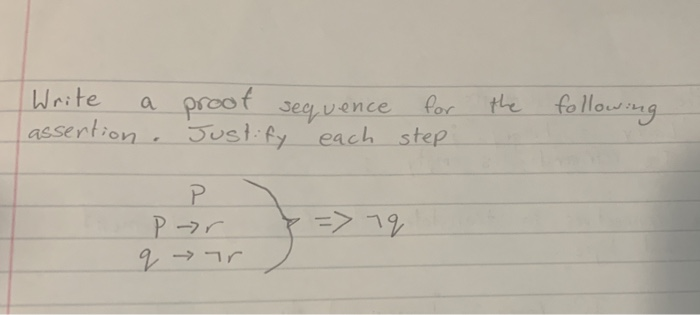 Write a proof sequence for the following
assertion. Justify each step
P
P → r
q → ¬r
} => ¬q